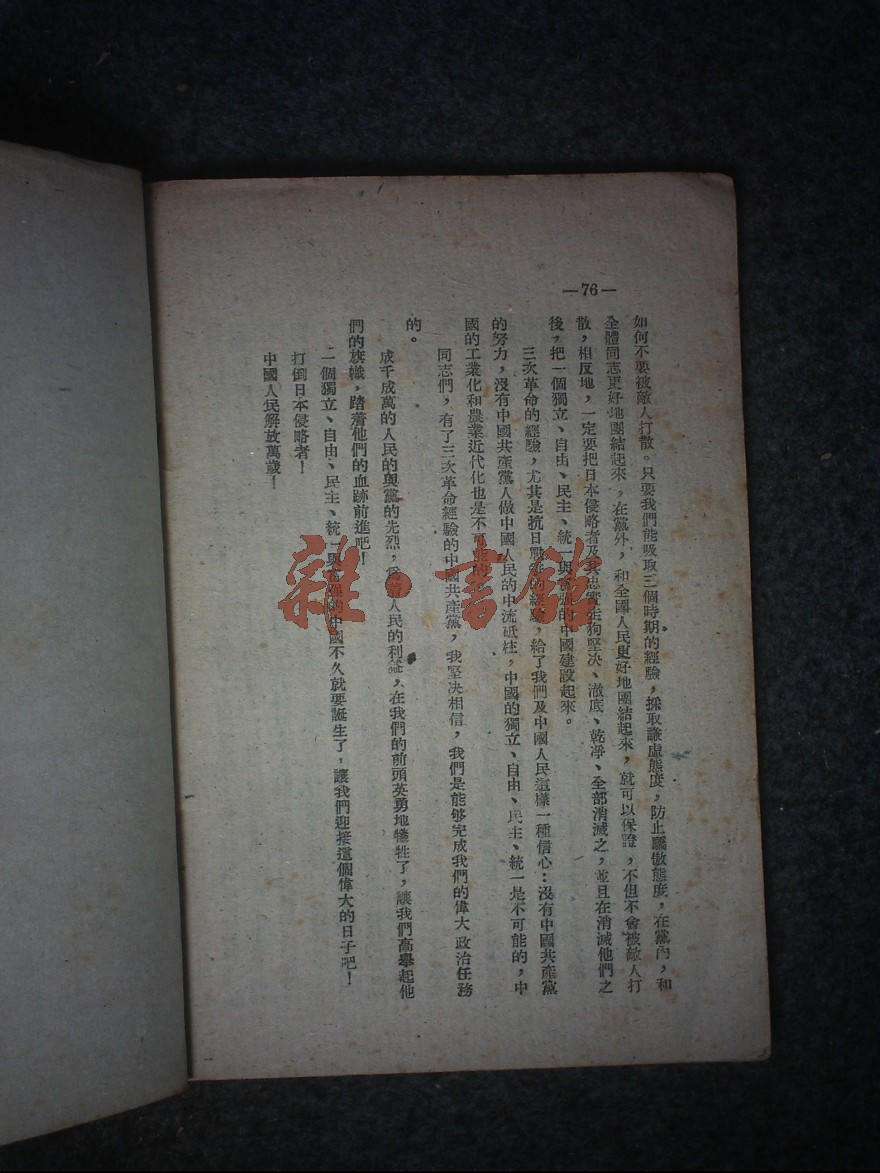 —76—
如何不要被敵人打散。只要我們能吸取三個時期的經驗，採取謙虛態度，防止驕傲態度，在黨內，和
全體同志更好地團結起來，在黨外，和全國人民更好地團結起來，就可以保證，不但不會被敵人打
散，相反地，一定要把日本侵略者及其忠實走狗堅决、澈底、乾凈、全部消滅之，並且在消滅他們之
後，把一個獨立、自由、民主、統一與富強的中國建設起來。
三次革命的經驗，尤其是抗日戰爭的經驗，給了我們及中國人民這樣一種信心：沒有中國共產黨
的努力，沒有中國共產黨人做中國人民的中流砥柱，中國的獨立、自由、民主、統一是不可能的，中
國的工業化和農業近代化也是不可能的
同志們，有了三次革命經驗的中國共產黨，我堅决相信，我們是能够完成我們的偉大政治任務
的。
成千成萬的人民的與黨的先烈，爲着人民的利益，在我們的前頭英勇地犧牲了，讓我們高舉起他
們的旗幟，踏着他們的血跡前進吧！
一個獨立、自由、民主、統一與富强的中國不久就要誕生了，讓我們迎接這個偉大的日子吧！
打倒日本侵略者！
中國人民解放萬歲！
雜·書館